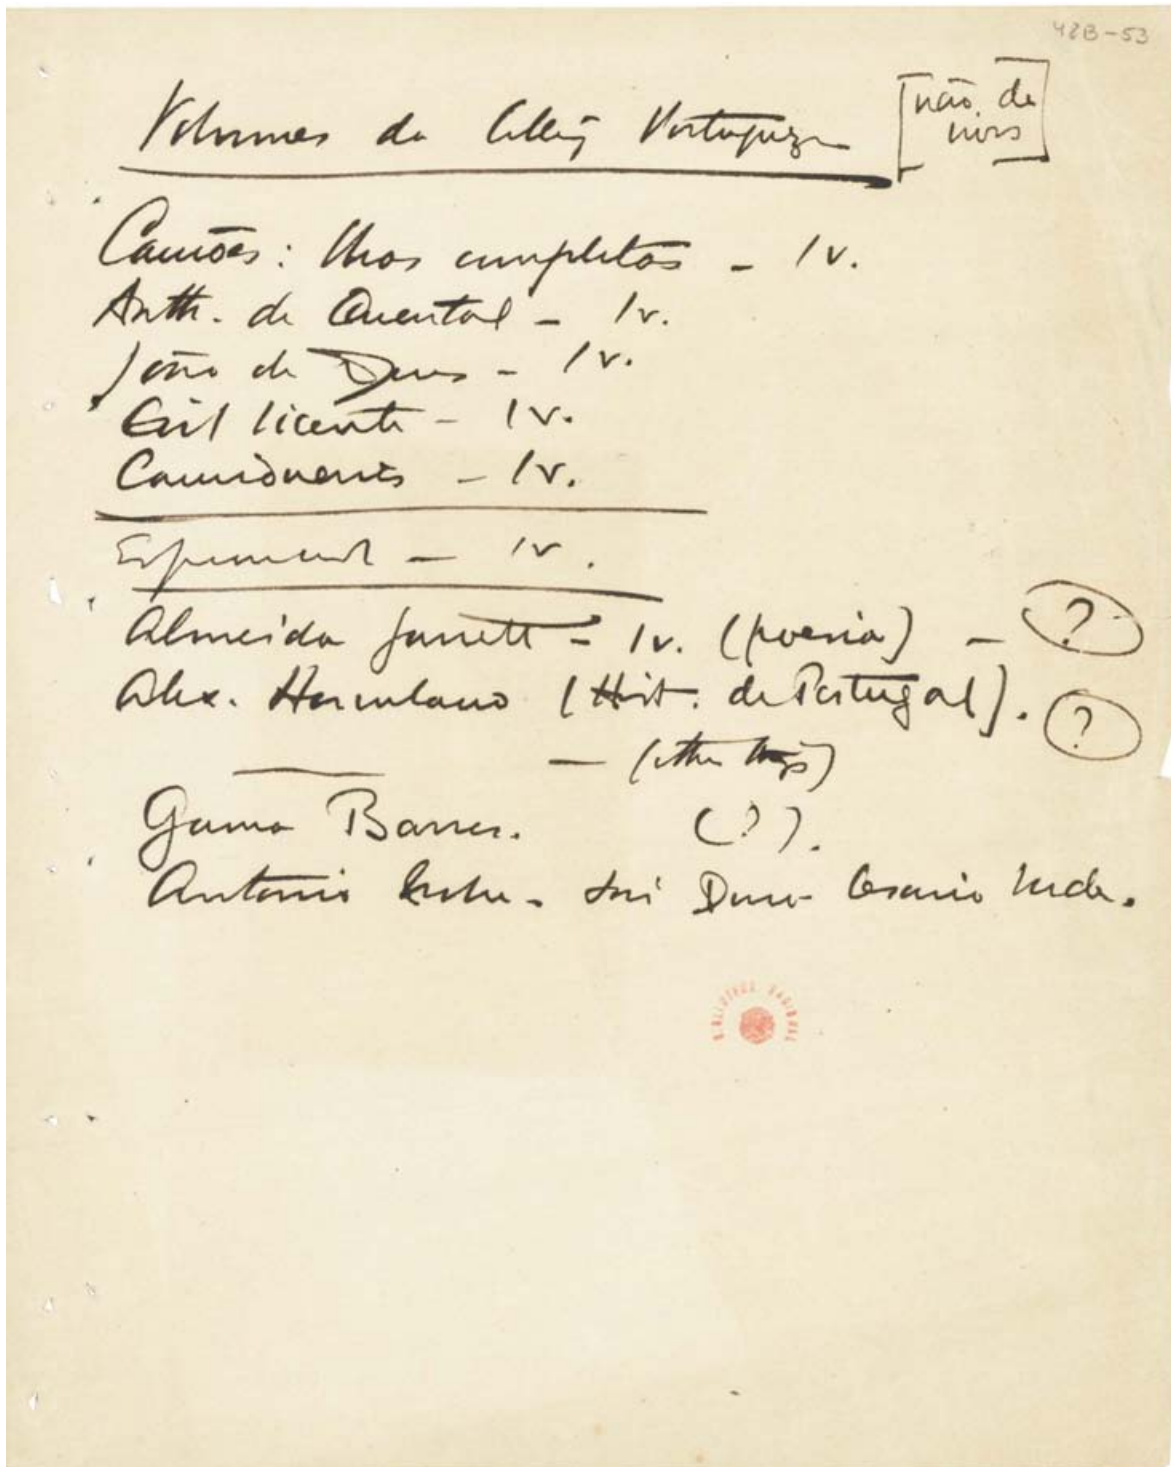 48B-53
Volumes da Collecç Portugueza [não de
vivos]
Camões: Obras completas - 1 v.
Anth. de Quental - 1 v.
João de Deus - 1 v.
Gil Vicente - 1 v.
Cancioneiros - 1 v.
- 1 v.
Almeida Garrett - 1 v. (poesia) - ?
Alex. Herculano (Hist. de Portugal). ?
— — (other things)
Gama Barros. (?).
Antonio Nobre - José Duro - Cesario Verde.
BIBLIOTECA NACIONAL